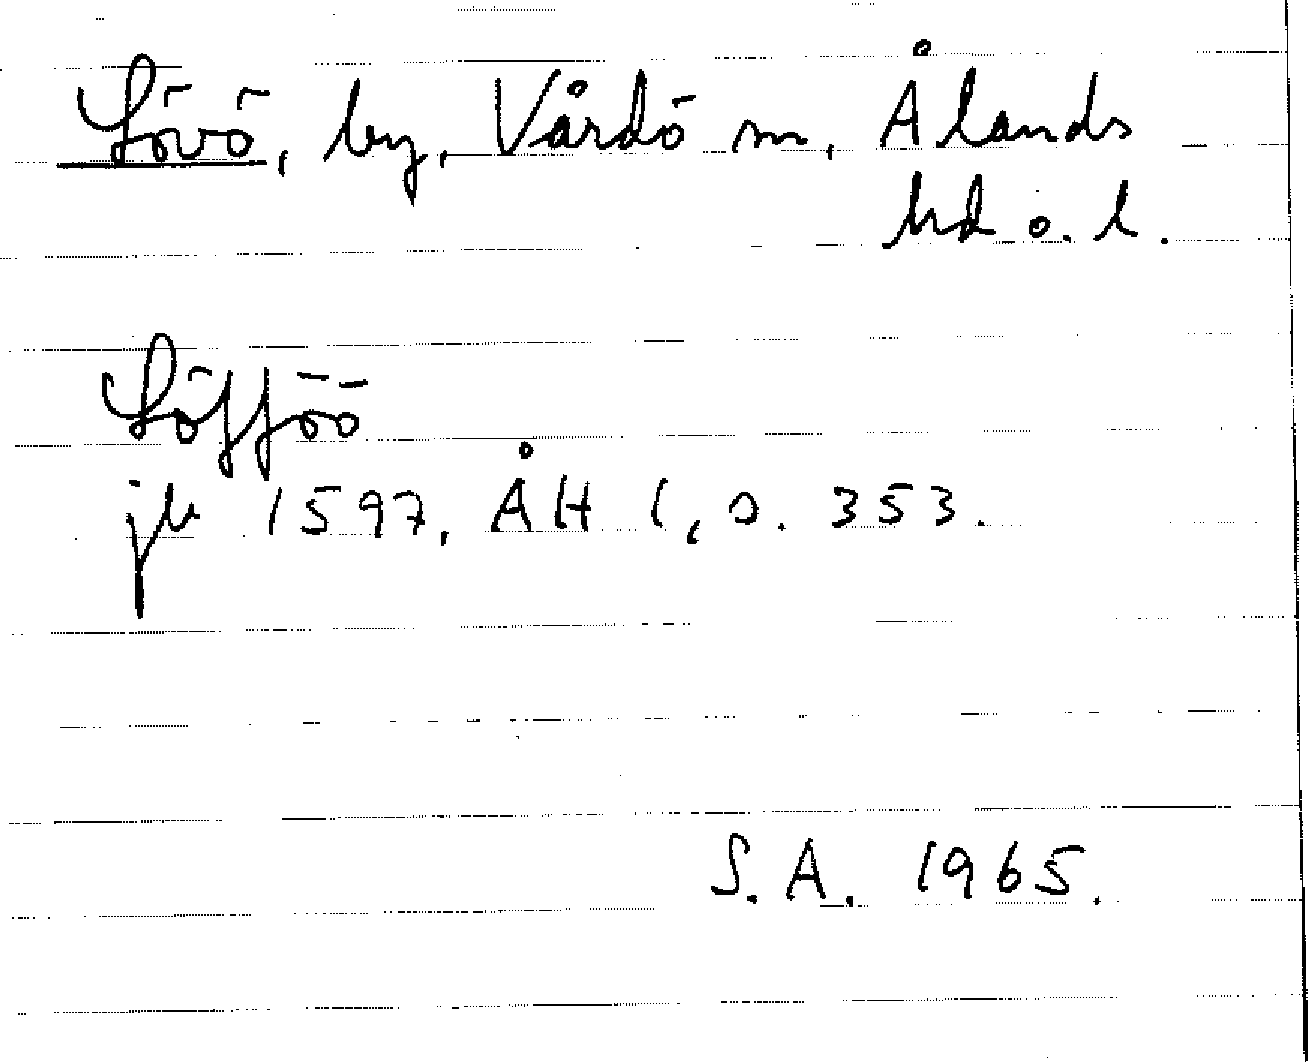 Lövö, by, Vårdö sn, Ålands
hd o. l.
Löfföö
jb 1597, ÅH 1, s. 353.
S.A. 1965.